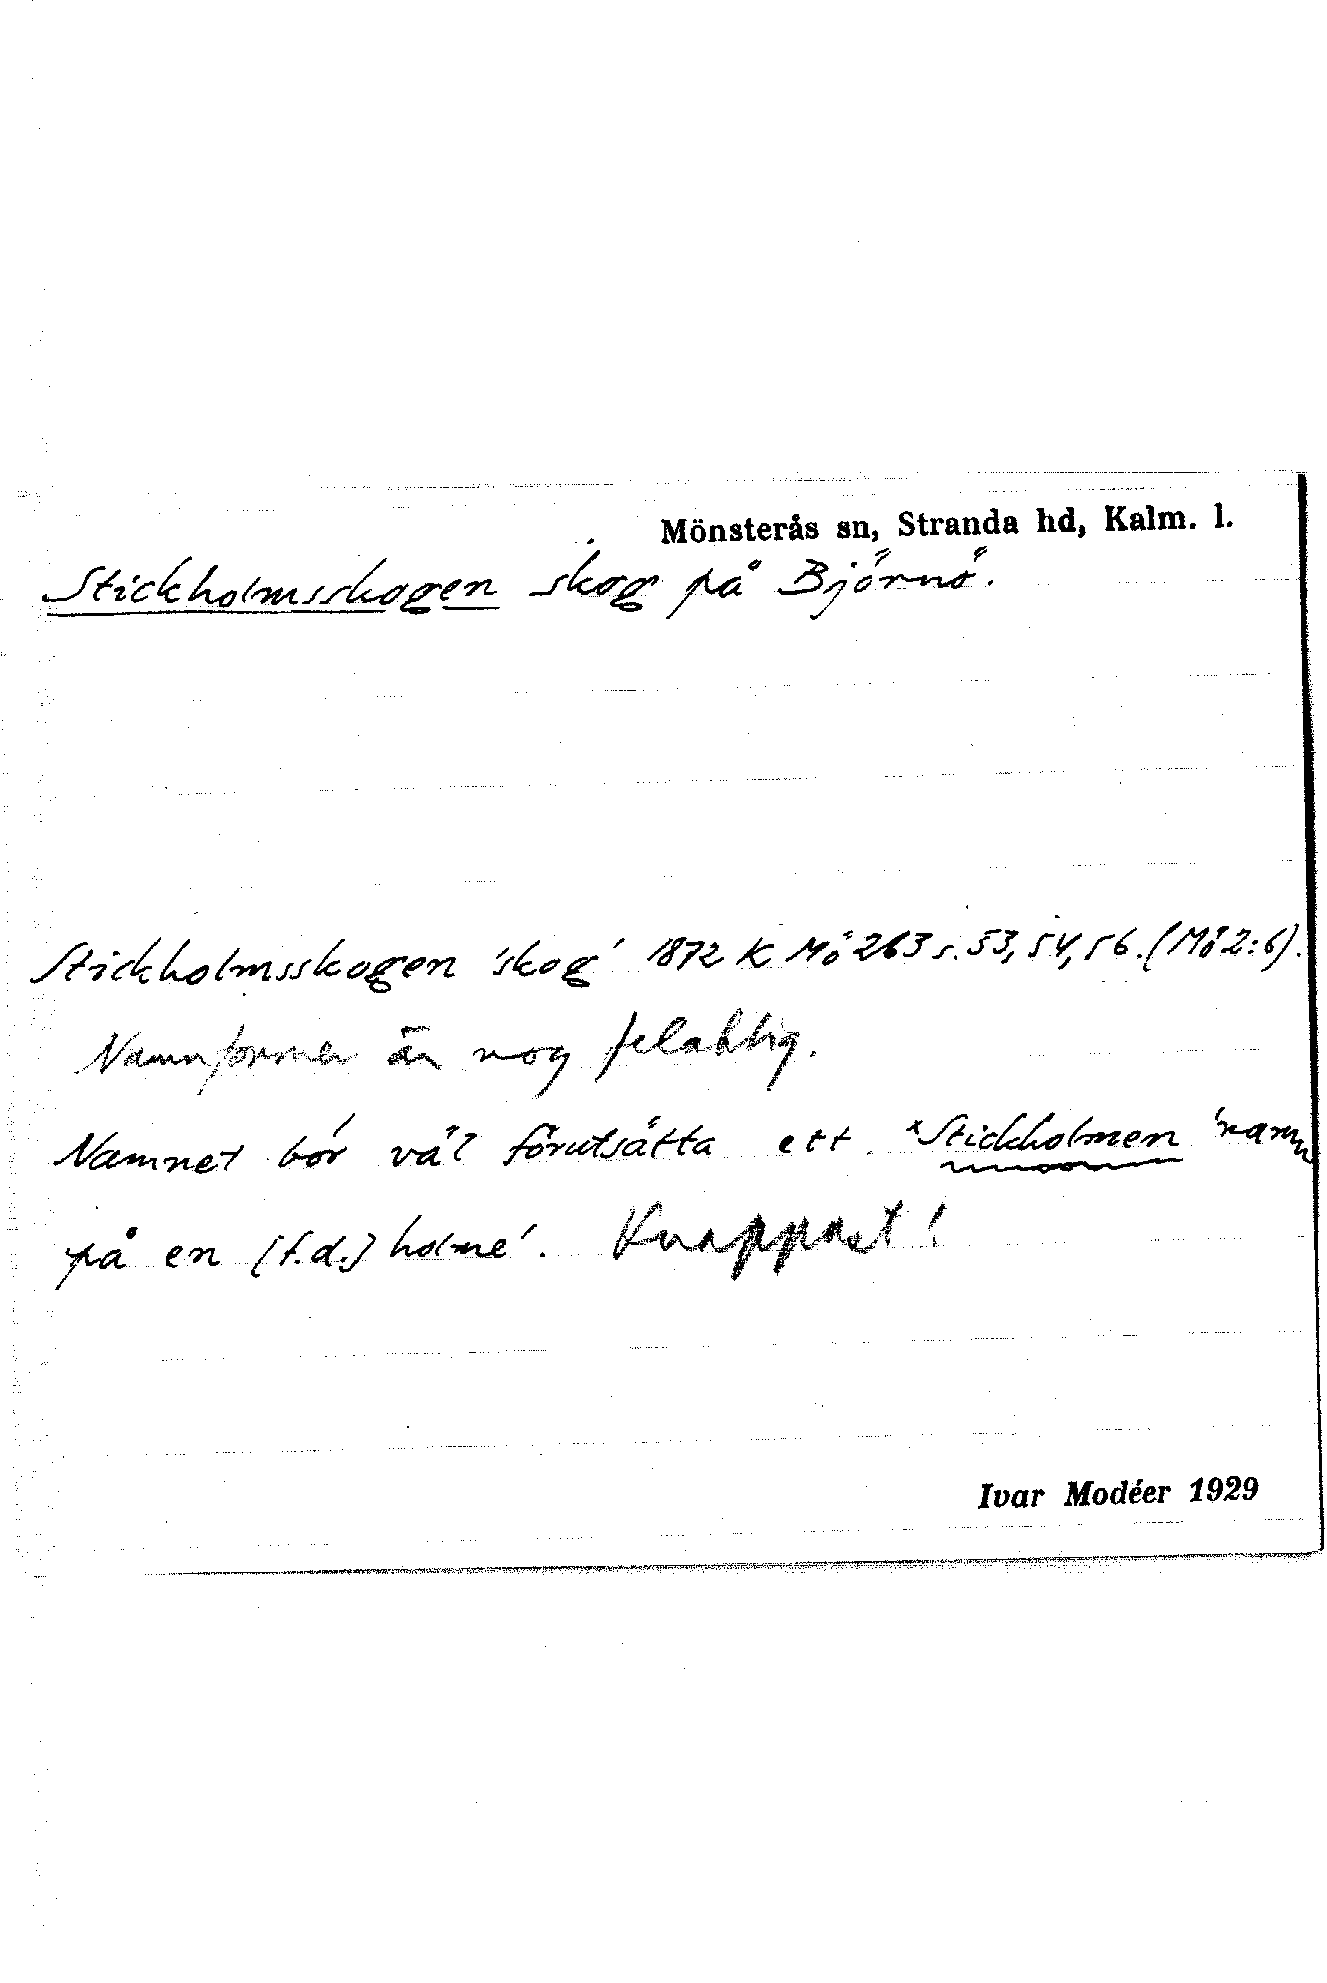 Mönsterås sn, Stranda hd, Kalm. l.
Stickholmsskogen skog på Björnö.
Stickholmsskogen 'skog' 1872 K Mö 263 s. 53, 54, 56. (Mö 2:6).
Namnformen är nog felaktig.
Namnet bör väl förutsätta ett *Stickholmen 'namn
på en (f.d.) holme'. Knappast!
Ivar Modéer 1929